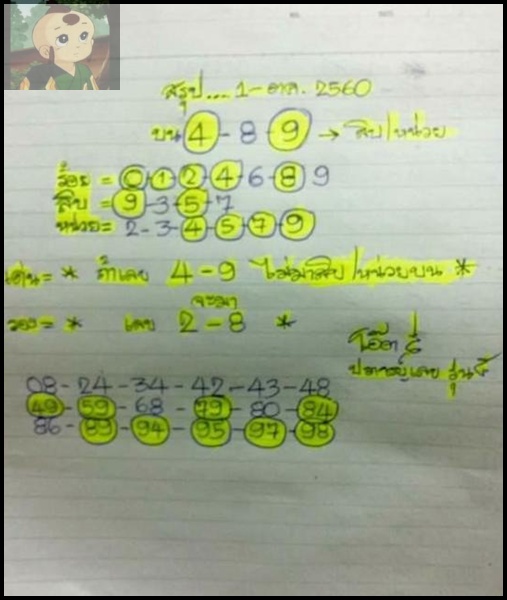 สรุป... 1-ตค. 2560
บน 4 - 8 - 9 → สิบ/หน่วย
ร้อย = 0-1-2-4-6-8 9
สิบ = 9-3-5-7
หน่วย = 2-3-4-5-7-9
เด่น = * ถ้าเลข 4-9 ไม่มาสิบ/หน่วยบน *
จะมา
รอง = * เลข 2-8 *
โอ๊ต
08-24-34-42-43-48
49-59-68-79-80-84
86-89-94-95-97-98